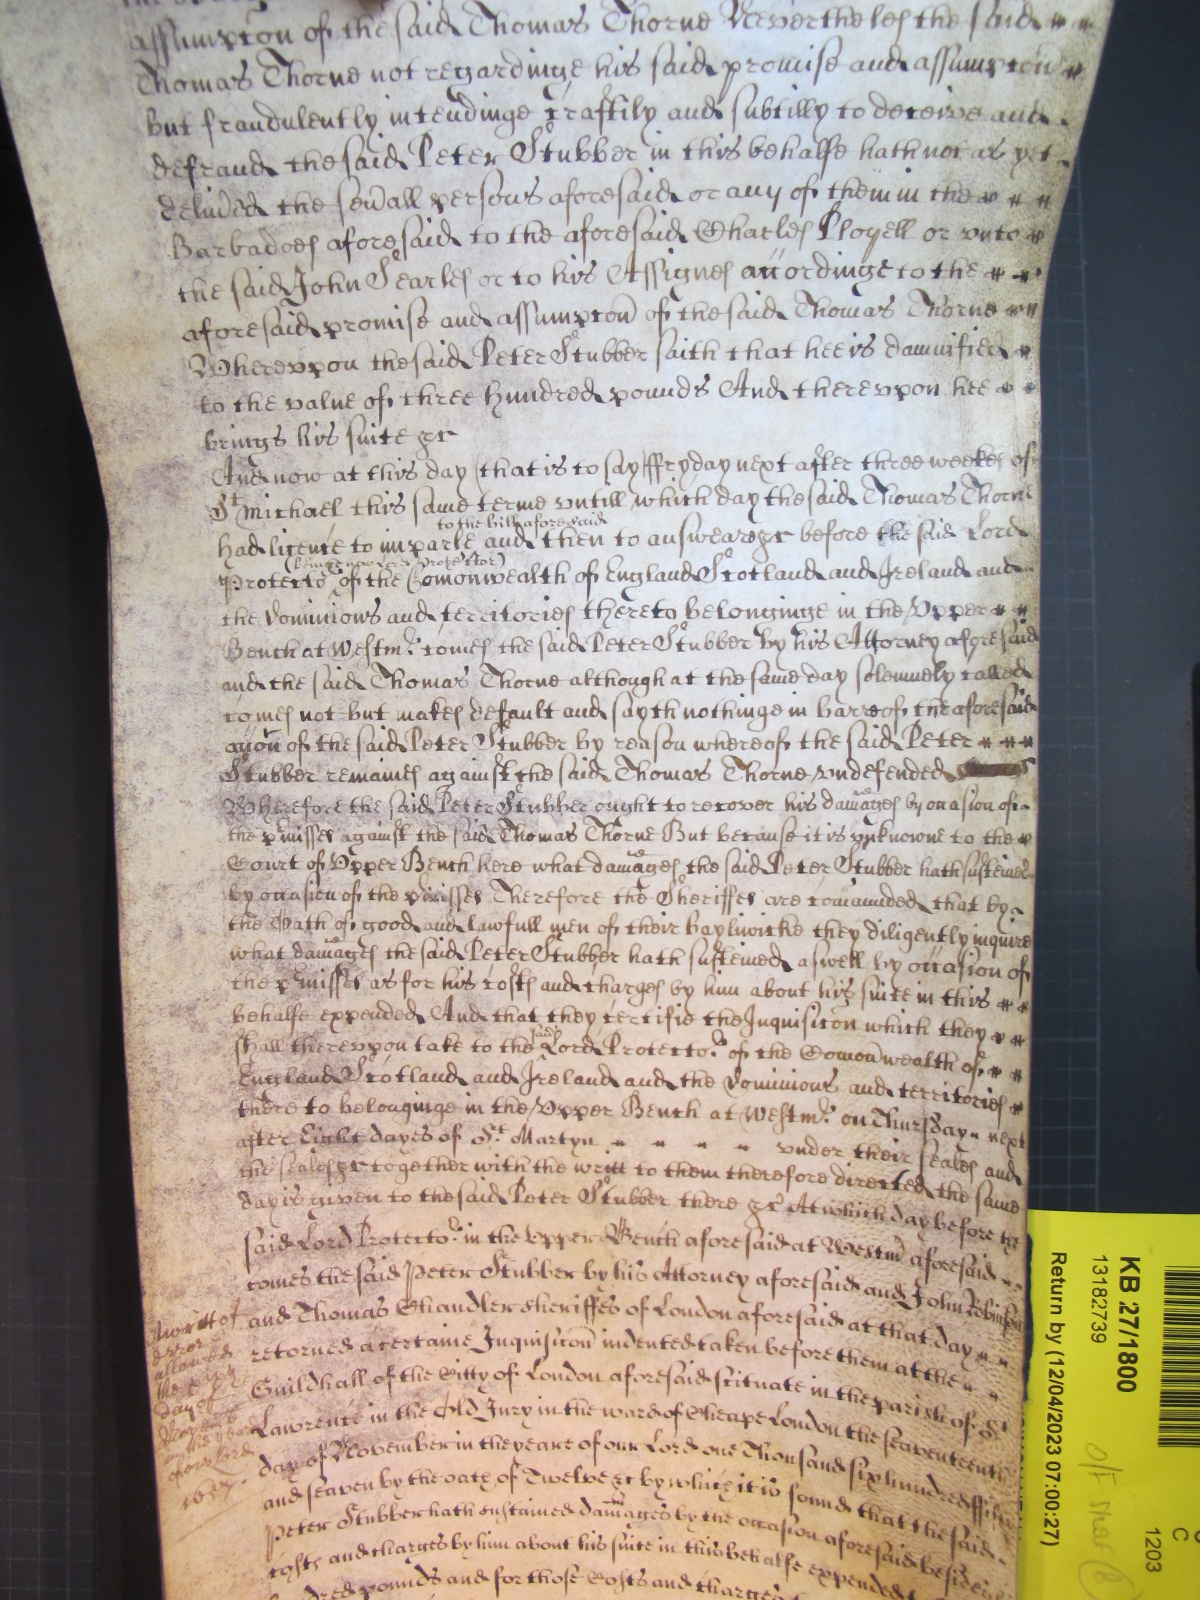 assumpcon of the said Thomas Thorne Neverthelesse the said
Thomas Thorne not regardinge his said promise and assumpcon
But fraudulently intendinge craftily and subtilly to deceive and
defraud the said Peter Stubber in this behalfe hath not as yet
delivered the sev'all persons aforesaid or any of them in the
Barbadoes aforesaid to the aforesaid Charles or unto
the said John Searles or to his Assignes accordinge to the
aforesaid promise and assumpcon of the said Thomas Thorne
Wherevpon the said Peter Stubber saith that hee is damnified
to the value of three hundred pounds And therevpon hee
brings his suite &c
And now at this day (that is to say) ffryday next after three weekes of
St Michael this same terme vntill which day the said Thomas Thorne
to the bill aforesaid
had licence to imparle and then to answeare &c before the said Lord
(beinge now Lord Protector)
Protector of the Comonwealth of England Scotland and Ireland and
the Dominions and territories thereto belonginge in the Vpper
Bench at Westmr comes the said Peter Stubber by his Attorney aforesaid
and the said Thomas Thorne although at the same day solemnely called
comes not but makes default and sayth nothinge in barre of the aforesaid
accon of the said Peter Stubber by reason whereof the said Peter
Stubber remaines against the said Thomas Thorne vndefended
Wherefore the said Peter Stubber ought to recover his damages by occasion of
the p'misses against the said Thomas Thorne But because it is vnknowne to the
Court of Vpper Bench here what damages the said Peter Stubber hath susteined
by occasion of the p'misses Therefore the Sheriffes are comaunded that by
the Oath of good and lawfull men of their bayliwicke they diligently inquire
what damages the said Peter Stubber hath susteined aswell by occasion of
the p'misses as for his costs and charges by him about his suite in this
behalfe expended And that they certifie the Inquisicon which they
shall therevpon take to the said Lord Protector of the Comonwealth of
England Scotland and Ireland and the Dominions and territories
there to belonginge in the Vpper Bench at Westmr on Thursday next
after Eight dayes of St Martyn vnder their seales and
the seales &c together with the writt to them therefore directed the same
day is given to the said Peter Stubber there &c At which day before the
said Lord Protector in the Vpper Bench aforesaid at Westmr aforesaid
comes the said Peter Stubber by his Attorney aforesaid and John Robinson
and Thomas Chandler sheriffes of London aforesaid at that day
retorned a certaine Inquisicon indented taken before them at the
Guildhall of the Citty of London aforesaid scituate in the parish of St
Lawrence in the Old Jury in the ward of Cheape London the seaventeenth
day of November in the yeare of our Lord one Thousand six hundred fiftie
and seaven by the oath of Twelve &c by which it is found that the said
Peter Stubber hath sustained damages by the occasion aforesaid besides
costs and charges by him about his suite in this behalfe expended
pounds and for those Costs and charges
A writt of
error
allowed
the
day of
of our Lord
1657
KB 27/1800
13182739
Return by (12/04/2023 07:00:27)
C
1203